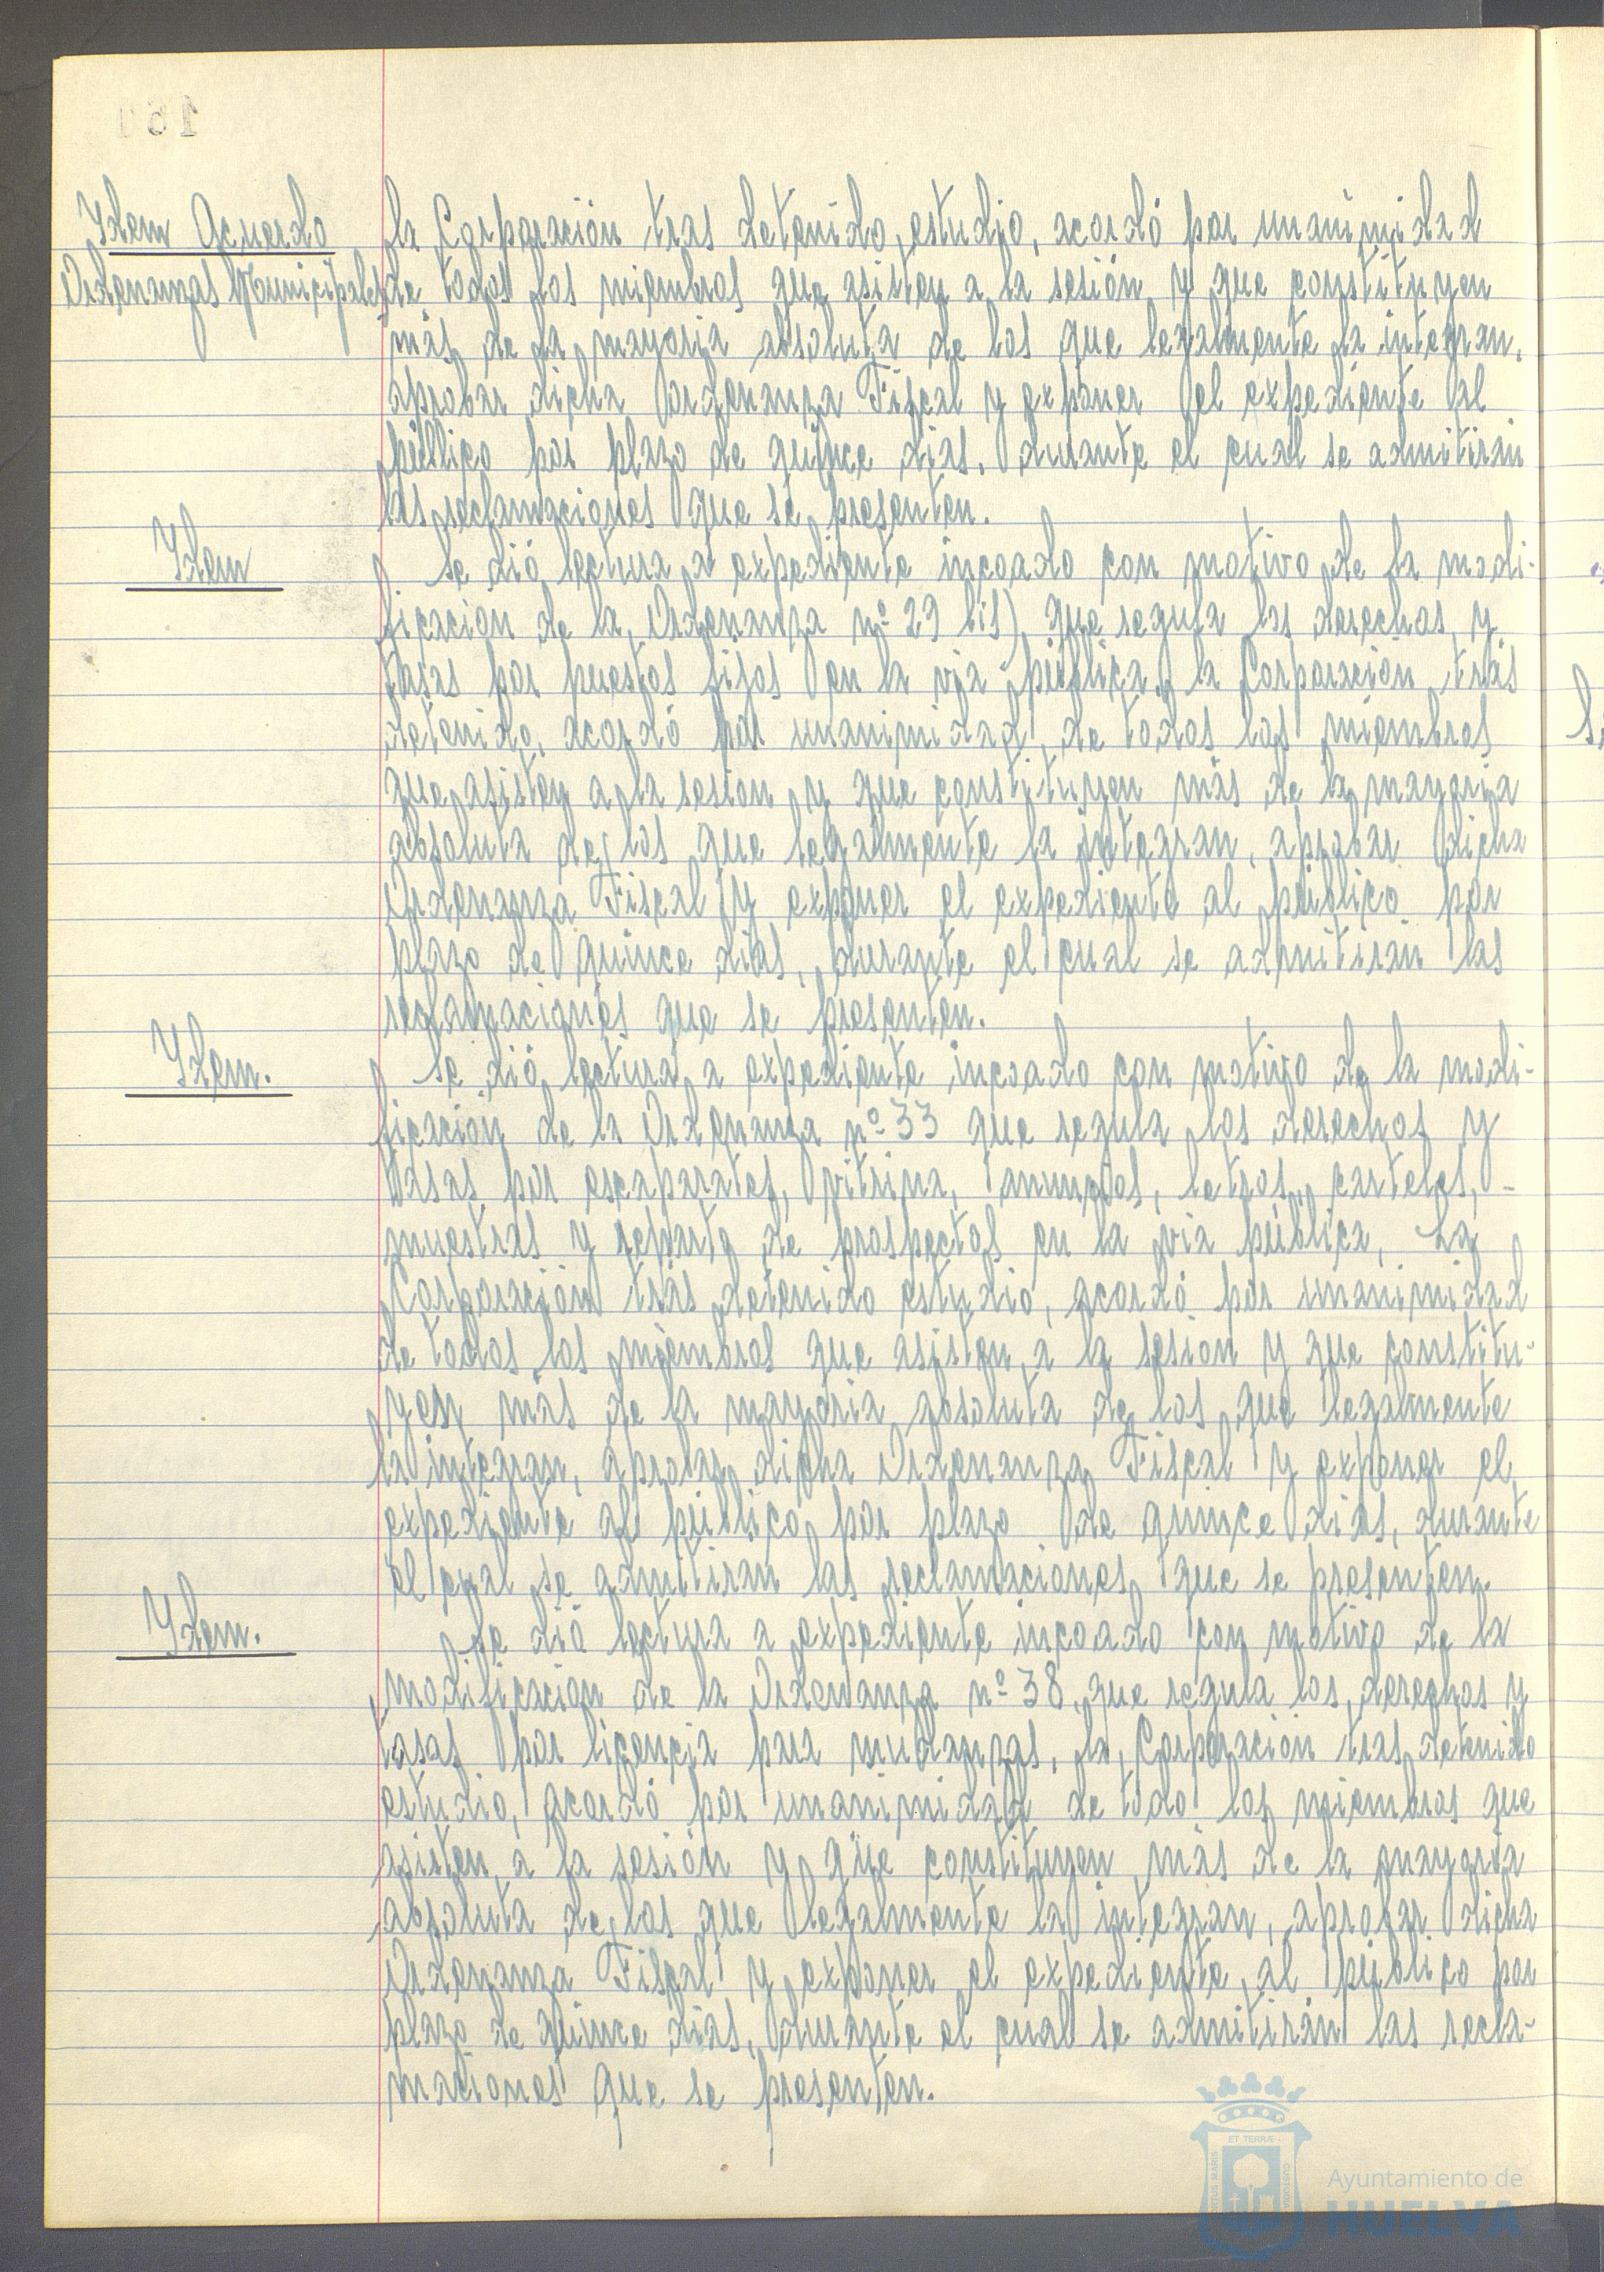 Ydem Acuerdo
Ordenanzas Municipales
la Corporación tras detenido estudio, acordó por unánimidad
de todos los miembros que asisten a la sesión y que constituyen
más de la mayoria absoluta de los que legalmente la integran,
aprobar dicha Ordenanza Fiscal y exponer el expediente al
público por plazo de quince dias, durante el cual se admitirán
las reclamaciones que se presenten.
Ydem
Se dió lectura a expediente incoado con motivo de la modi-
ficación de la Ordenanza nº 29 bis), que regula los derechos y
tasas por puestos fijos en la via pública, la Corporación trás
detenido, acordó por unanimidad, de todos los miembros
que asisten a la sesión y que constituyen más de la mayoria
absoluta de los que legalmente la integran, aprobar dicha
Ordenanza Fiscal y exponer el expediente al público por
plazo de quince dias, durante el cual se admitirán las
reclamaciones que se presenten.
Ydem.
Se dió lectura a expediente incoado con motivo de la modi-
ficación de la Ordenanza nº 33 que regula los derechos y
tasas por escaparates, vitrina, anuncios, letras, carteles, -
muestras y reparto de prospectos en la via pública, La
Corporación trás detenido estudio, acordó por unanimidad
de todos los miembros que asisten a la sesión y que constitu-
yen más de la mayoria absoluta de los que legalmente
la integran, aprobar dicha Ordenanza Fiscal y exponer el
expediente al público por plazo de quince dias, durante
el cual se admitiran las reclamaciones que se presenten.
Ydem.
Se dió lectura a expediente incoado con motivo de la
modificación de la Ordenanza nº 38, que regula los derechos y
tasas por licencia para mudanzas, la Corporación tras detenido
estudio, acordó por unanimidad de todo los miembros que
asisten a la sesión y que constituyen más de la mayoria
absoluta de los que legalmente la integran, aprobar dicha
Ordenanza Fiscal y exponer el expediente al público por
plazo de quince dias, durante el cual se admitirán las recla-
maciones que se presenten.
ET TERRÆ
PORTUS MARIS
CUSTODIA
Ayuntamiento de
HUELVA